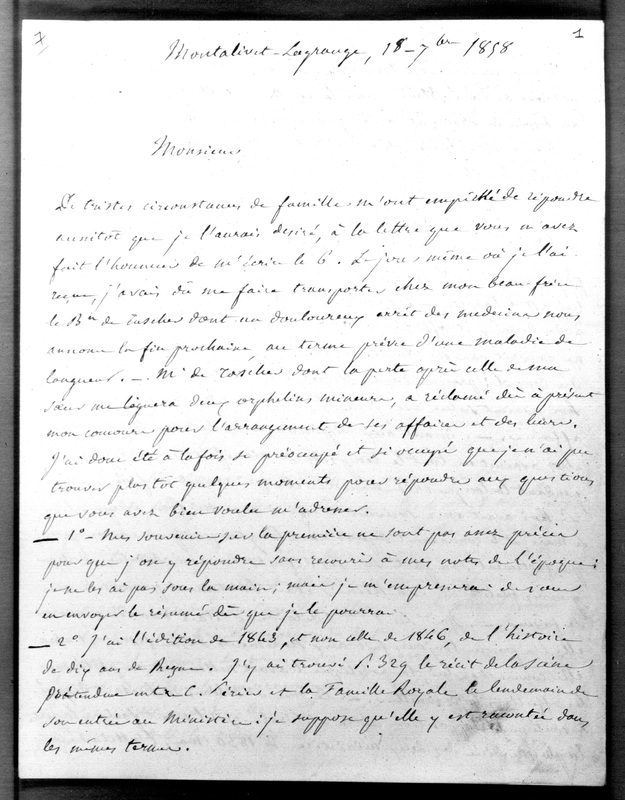 1
Montalivet-Lagrange, 18 - 7bre 1858
Monsieur
De tristes circonstances de famille m'ont empêché de répondre
aussitôt que je l'aurais désiré, à la lettre que vous m'avez
fait l'honneur de m'écrire le 6. Le jour même où je l'ai
reçue, j'avais dû me faire transporter chez mon beau-frère
le Bon de Tascher dont un douloureux arrêt des médecins nous
annonce la fin prochaine, au terme prévu d'une maladie de
langueur. — Mr de Tascher dont la perte après celle de ma
sœur me léguera deux orphelins mineurs, a réclamé dès à présent
mon concours pour l'arrangement de ses affaires et des leurs.
J'ai donc été à la fois si préoccupé et si occupé que je n'ai pu
trouver plus tôt quelques moments pour répondre aux questions
que vous avez bien voulu m'adresser.
— 1o - Mes souvenirs sur la première ne sont pas assez précis
pour que j'ose y répondre sans recourir à mes notes de l'époque;
je ne les ai pas sous la main; mais je m'empresserai de vous
en envoyer le résumé dès que je le pourrai
— 2o J'ai l'édition de 1843, et non celle de 1846, de l'histoire
de dix ans de Règne. J'y ai trouvé P. 329 le récit de la scène
prétendue entre C. Périer et la Famille Royale le lendemain de
son entrée au Ministère: je suppose qu'elle y est racontée dans
les mêmes termes.